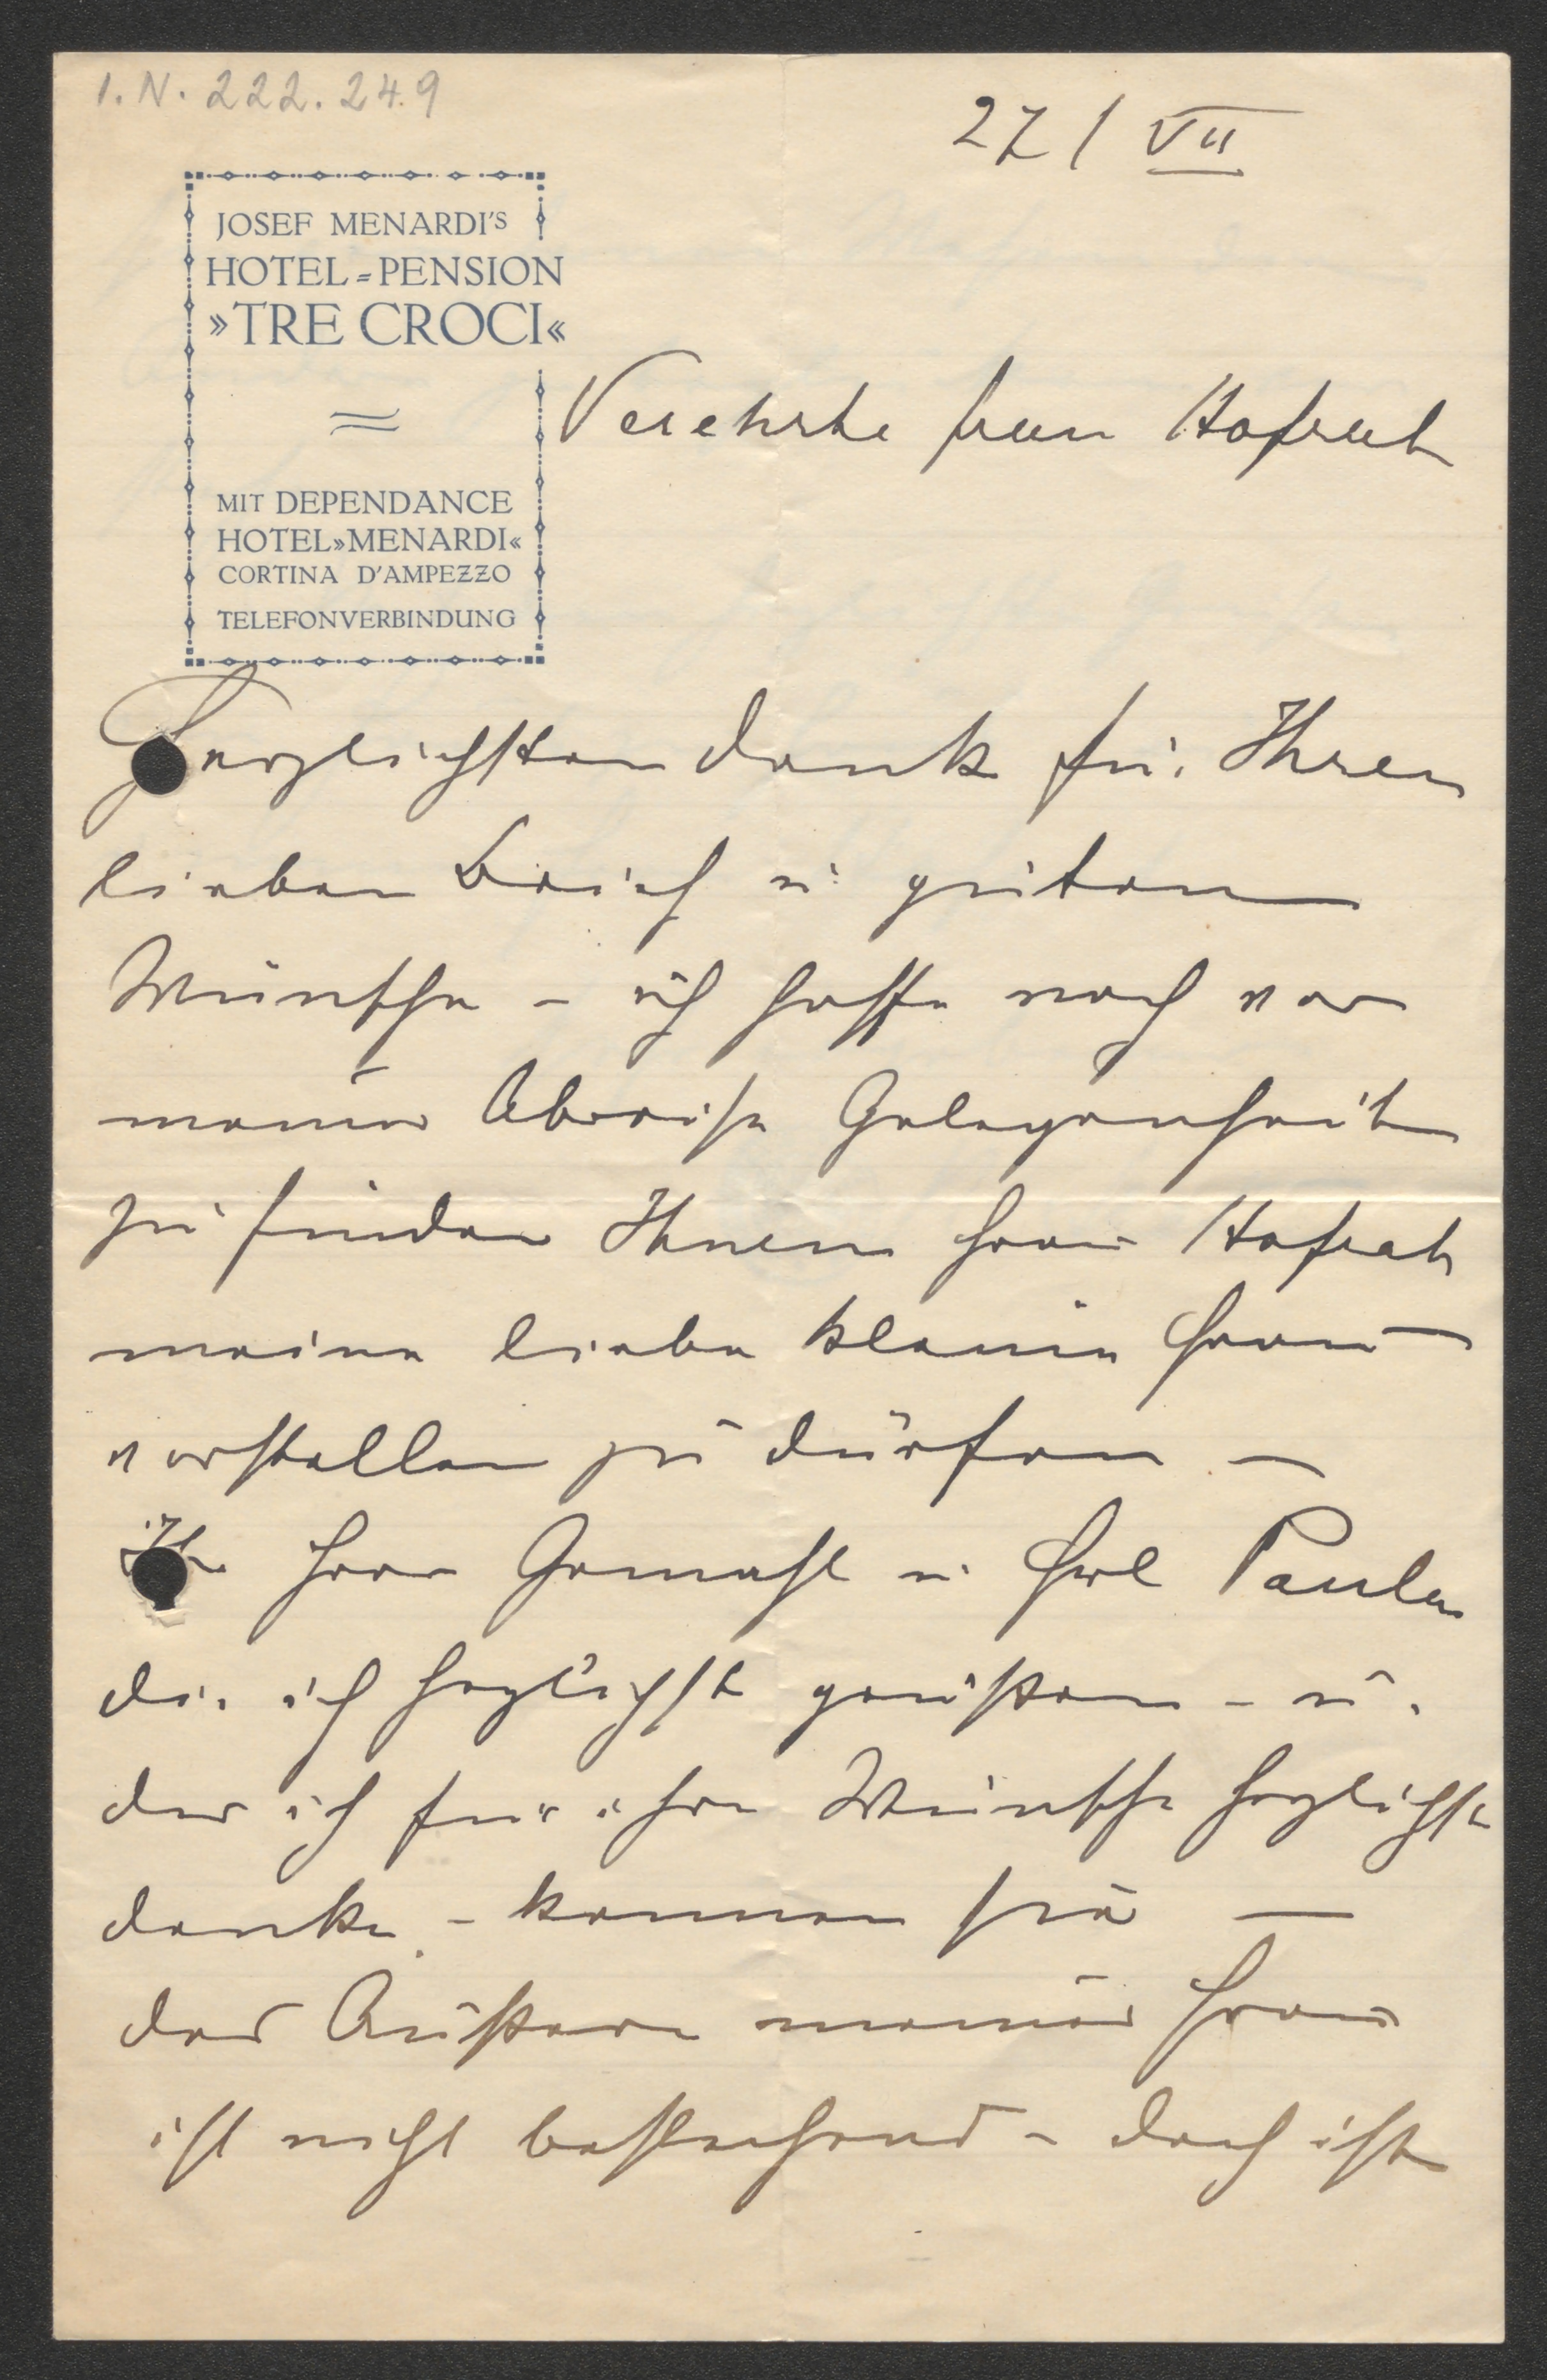 I.N. 222.249
27 / VII
JOSEF MENARDI'S
HOTEL=PENSION
»TRE CROCI«
MIT DEPENDANCE
HOTEL»MENARDI«
CORTINA D'AMPEZZO
TELEFONVERBINDUNG
Verehrte Frau Hofrat
Herzlichsten Dank für Ihren
lieben Brief u. guten
Wünsche – ich hoffe noch vor
meiner Abreise Gelegenheit
zu finden Ihnen Frau Hofrat
meine liebe kleine Frau
vorstellen zu dürfen –
Ihr Herr Gemahl u. Frl Paula
die ich herzlichst grüßen – u.
der ich für ihre Wünsche herzlichst
danke – kennen sie –
das Äußere meiner Frau
ist nicht bestechend – doch ist